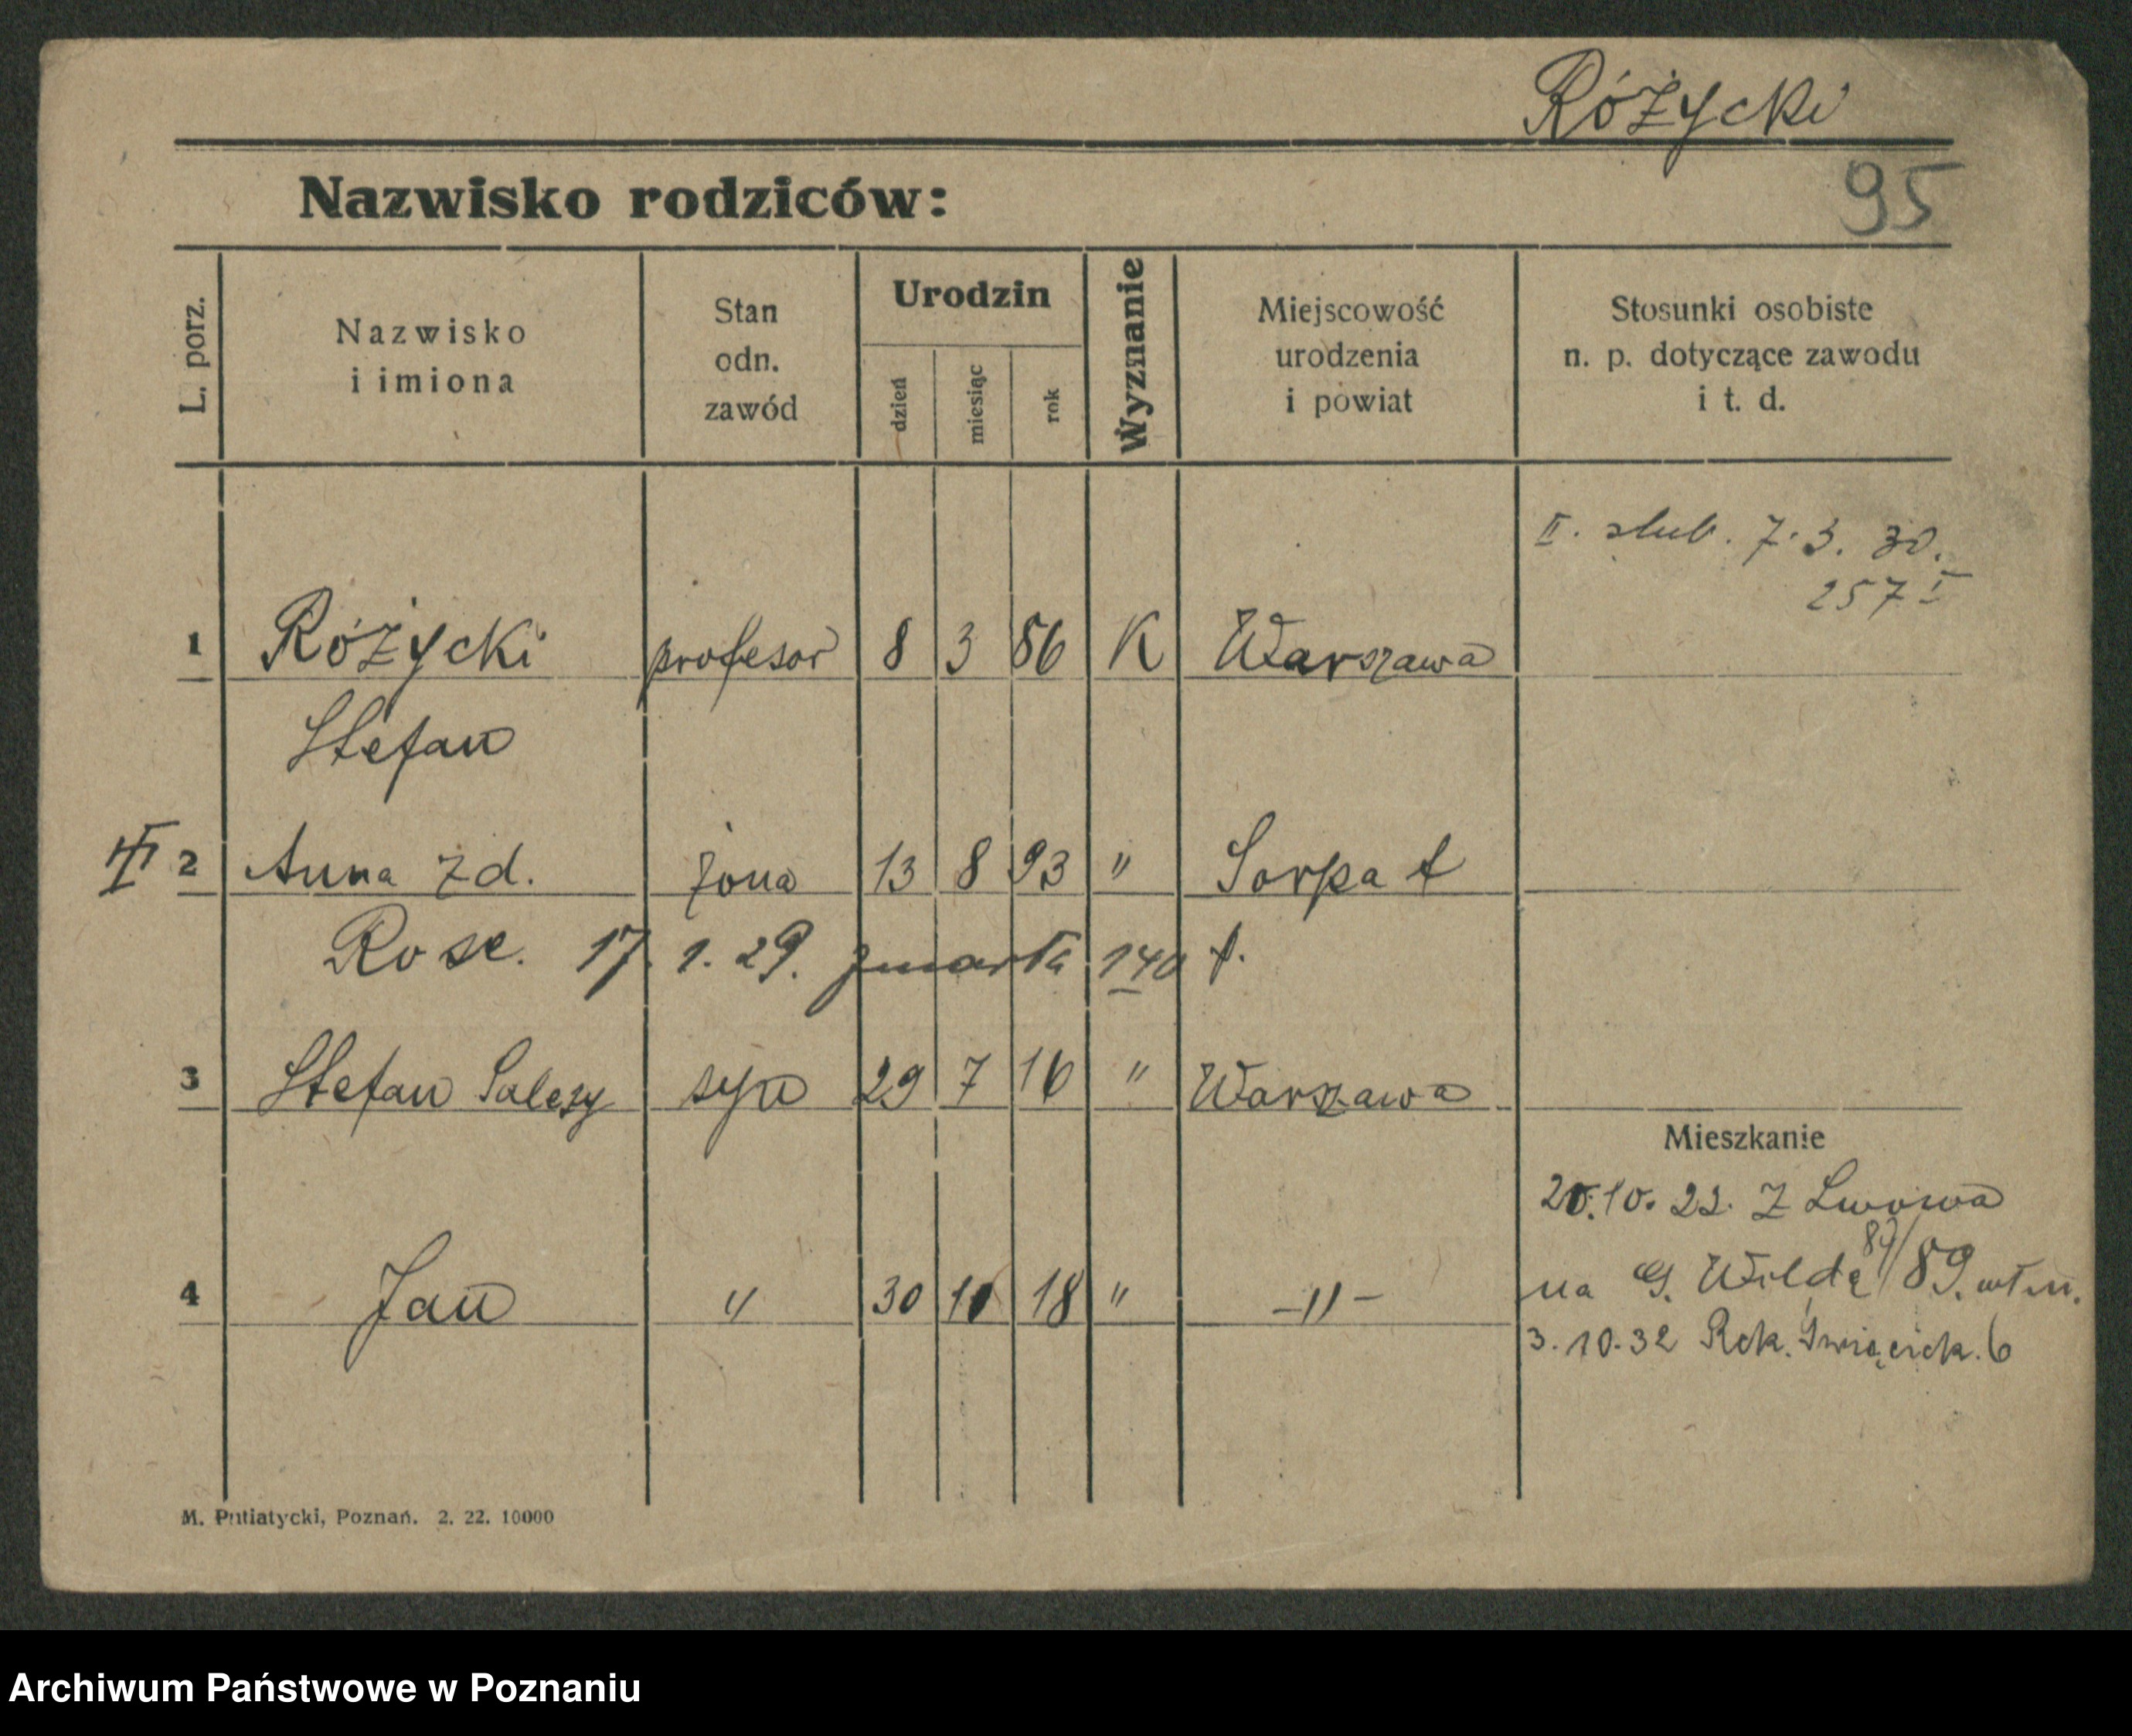 Różycki
95
Nazwisko rodziców:
L. porz.
Nazwisko
i imiona
Stan
odn.
zawód
Urodzin
dzień
miesiąc
rok
Wyznanie
Miejscowość
urodzenia
i powiat
Stosunki osobiste
n. p. dotyczące zawodu
i t. d.
II. slub. 7. 3. 30.
257 I
1 Różycki profesor 8 3 86 K Warszawa
Stefan
2 Anna zd. żona 13 8 93 " Dorpat
Rose. 17. 1. 29. zmarła 140
3 Stefan Salezy syn 29 7 16 " Warszawa
Mieszkanie
20. 10. 22. z Lwowa
4 Jan " 30 18 " -"-
na G. Wildę 89.
3. 10. 32 Rck. Święcick. 6
M. Putiatycki, Poznań. 2. 22. 10000
Archiwum Państwowe w Poznaniu